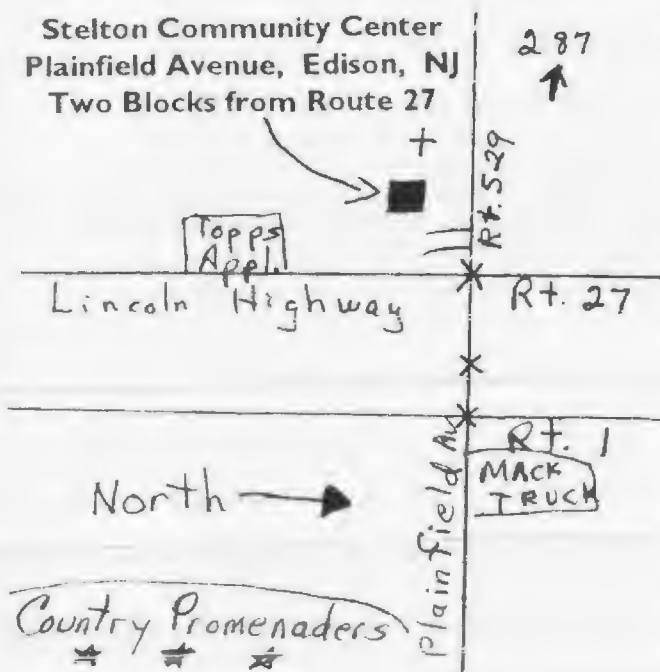 Stelton Community Center
Plainfield Avenue, Edison, NJ
Two Blocks from Route 27
287
Rt. 529
Topps
Appl.
Lincoln Highway
Rt. 27
Rt. 1
MACK
TRUCK
North
Plainfield Av
Country Promenaders